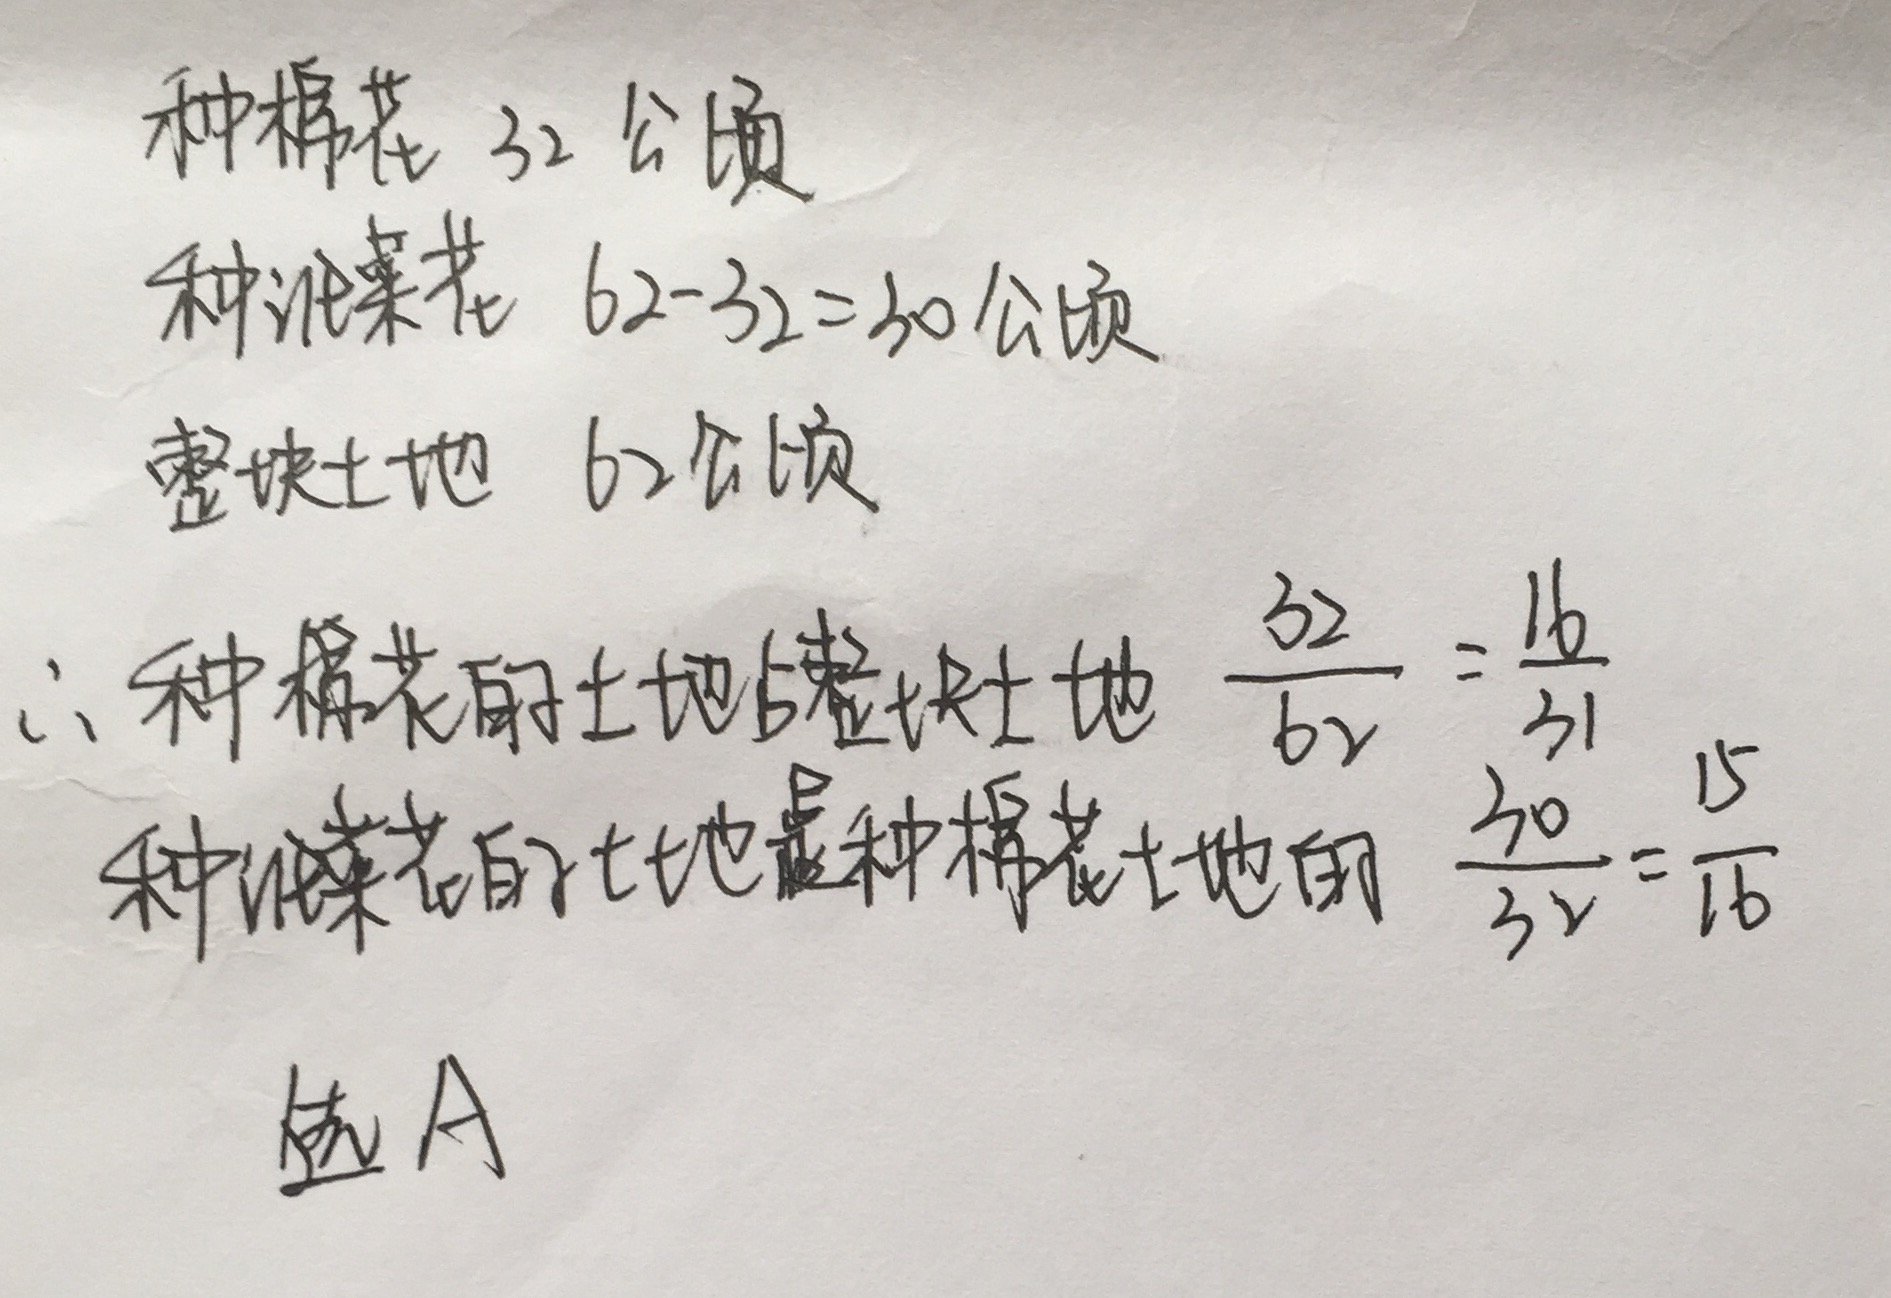 种棉花 32 公顷
种油菜花 62-32=30公顷
整块土地 62公顷
∴ 种棉花的土地占整块土地 32/62 = 16/31
种油菜花的土地是种棉花土地的 30/32 = 15/16
选 A